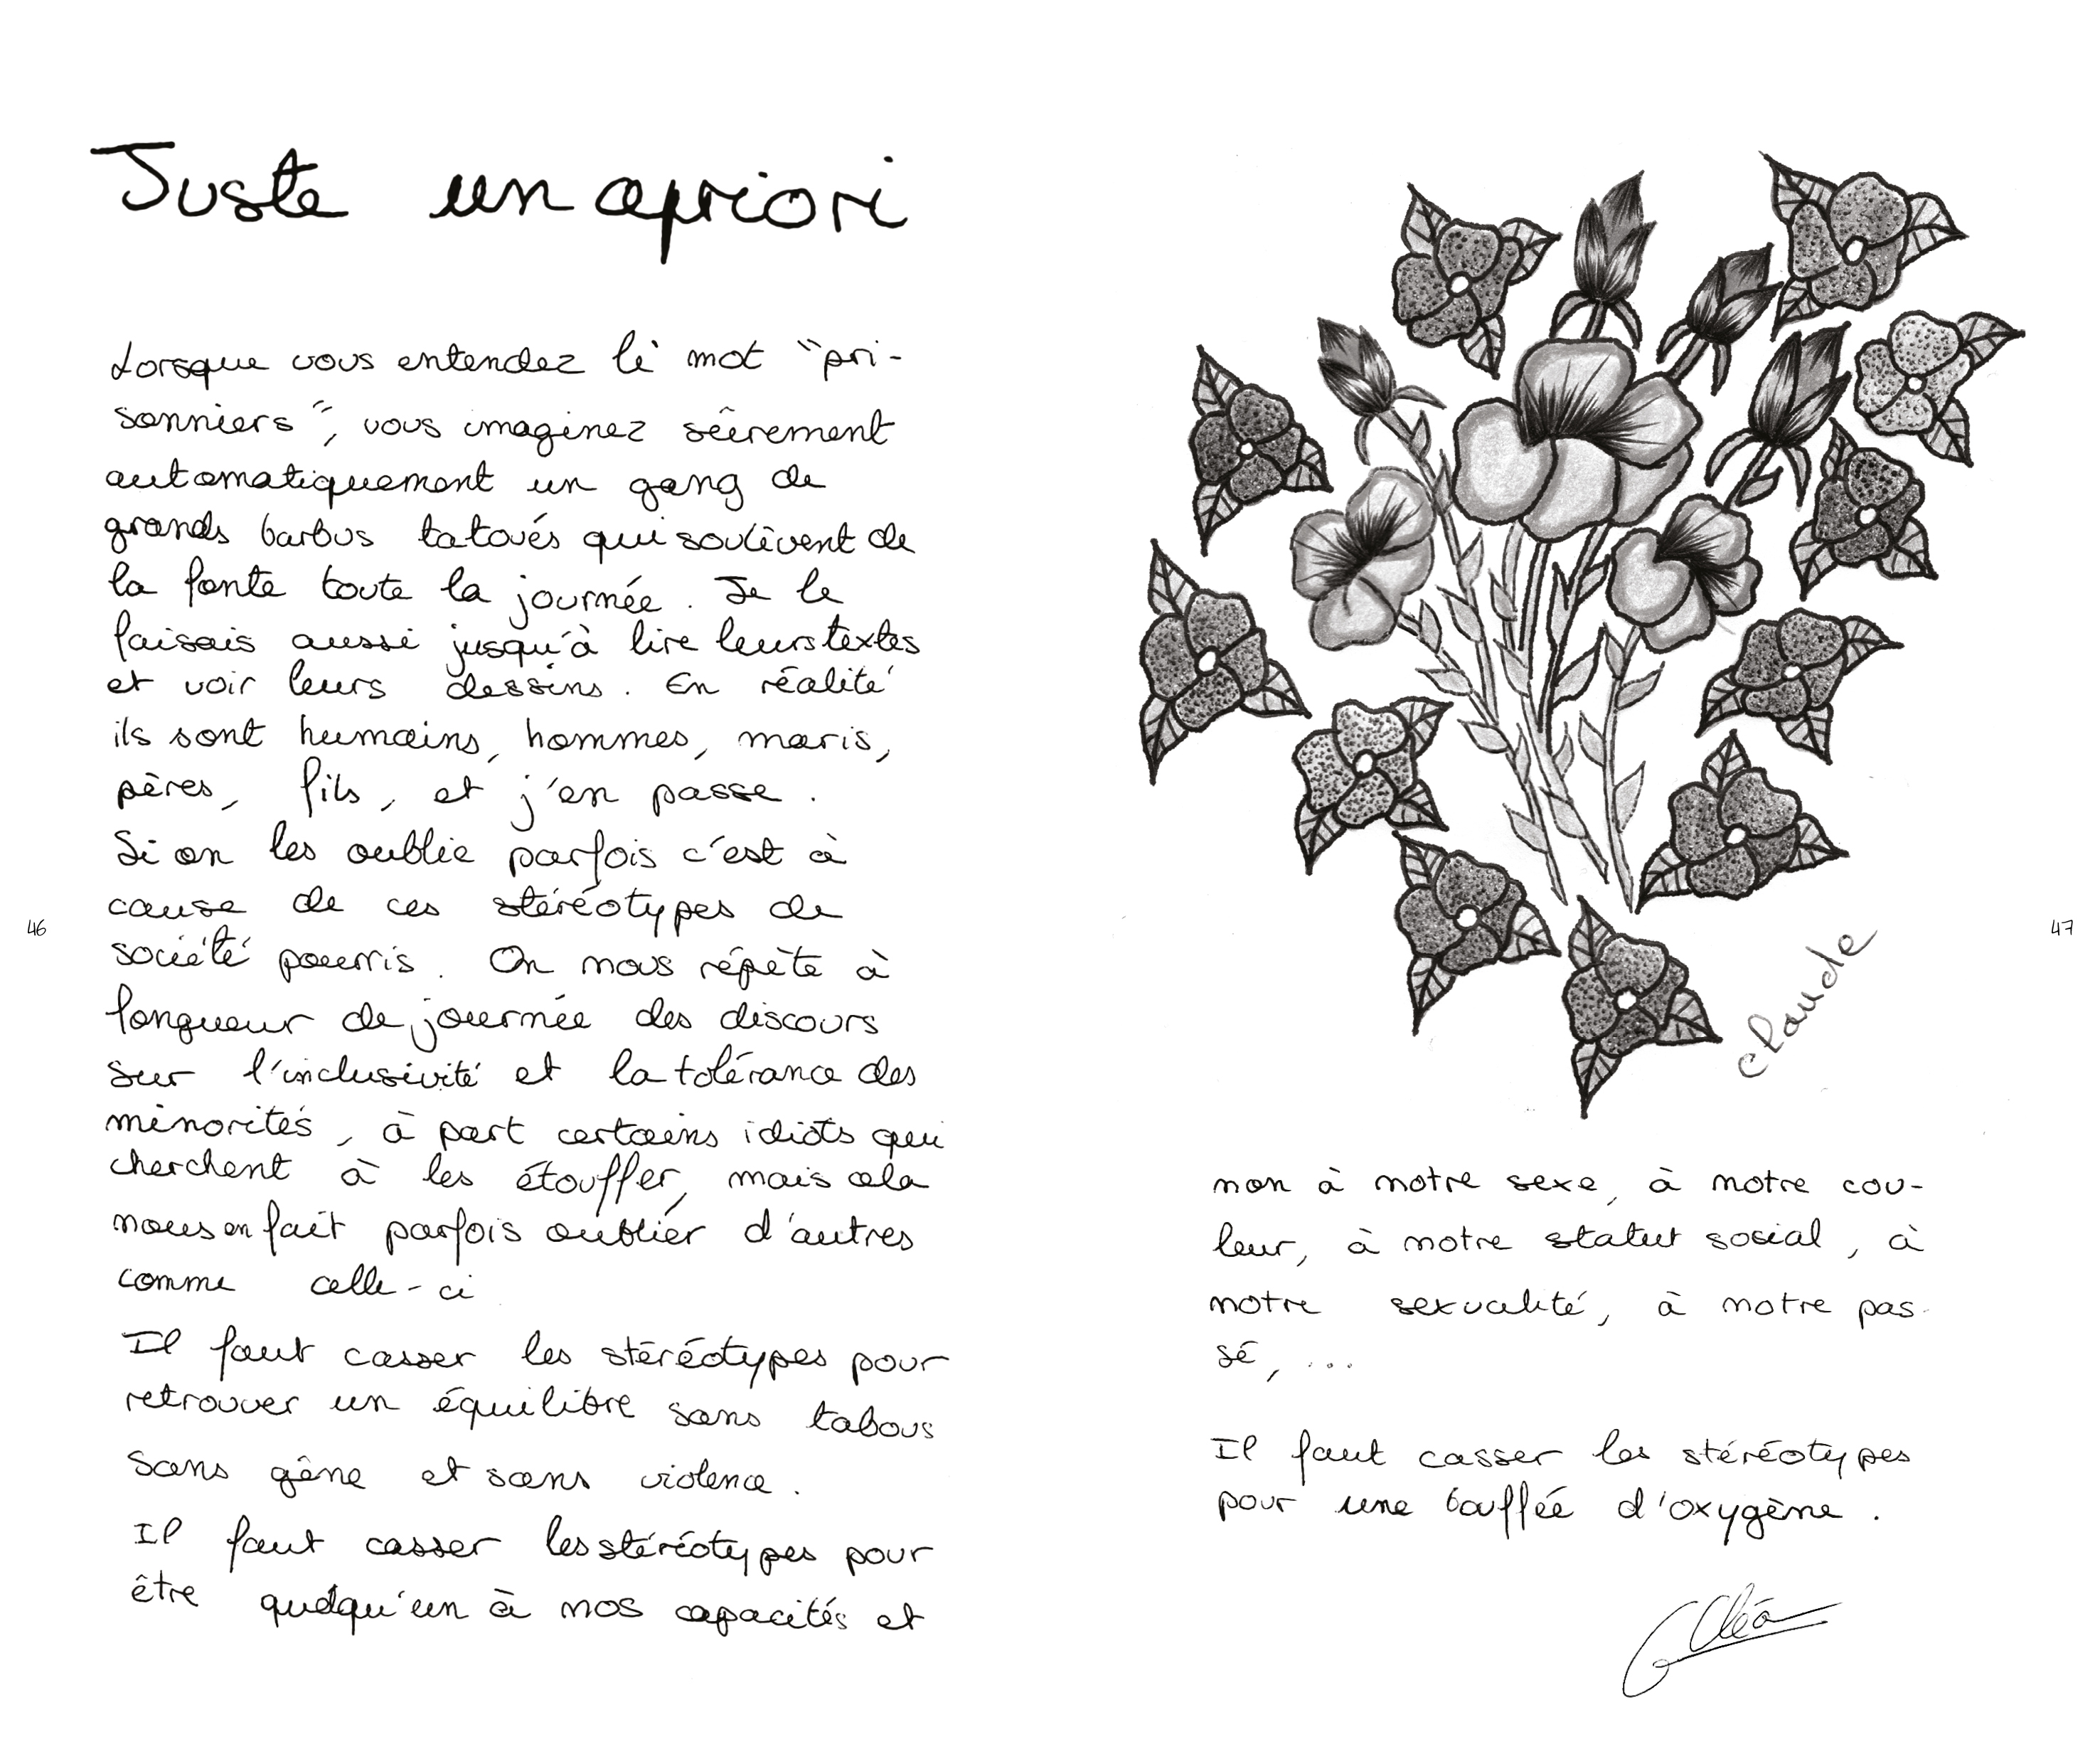 Juste un apriori
Lorsque vous entendez le mot "pri-
sonniers", vous imaginez sûrement
automatiquement un gang de
grands barbus tatoués qui soulèvent de
la fonte toute la journée. Je le
faisais aussi jusqu'à lire leurs textes
et voir leurs dessins. En réalité
ils sont humains, hommes, maris,
pères, fils, et j'en passe.
Si on les oublie parfois c'est à
cause de ces stéréotypes de
société pourris. On nous répète à
longueur de journée des discours
sur l'inclusivité et la tolérance des
minorités, à part certains idiots qui
cherchent à les étouffer, mais cela
nous en fait parfois oublier d'autres
comme celle-ci
Il faut casser les stéréotypes pour
retrouver un équilibre sans tabous
sans gêne et sans violence.
Il faut casser les stéréotypes pour
être quelqu'un à nos capacités et
46
claude
47
non à notre sexe, à notre cou-
leur, à notre statut sosial, à
notre sexualité, à notre pas-
sé, ...
Il faut casser les stéréotypes
pour une bouffée d'oxygène.
Cléa